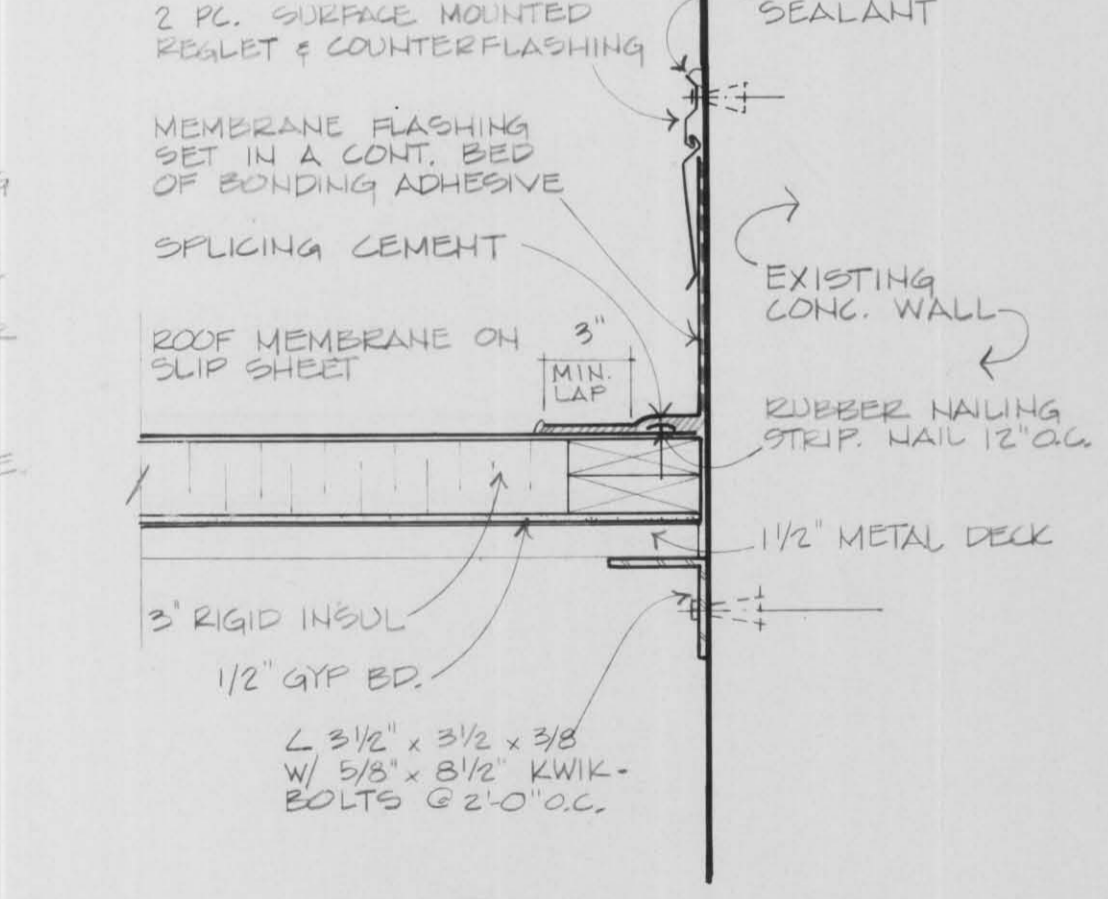 2 PC. SURFACE MOUNTED
REGLET & COUNTERFLASHING
SEALANT
MEMBRANE FLASHING
SET IN A CONT. BED
OF BONDING ADHESIVE
SPLICING CEMENT
EXISTING
CONC. WALL
ROOF MEMBRANE ON
SLIP SHEET
3"
MIN.
LAP
RUBBER NAILING
STRIP. NAIL 12" O.C.
1 1/2" METAL DECK
3" RIGID INSUL
1/2" GYP BD.
L 3 1/2" x 3 1/2 x 3/8
W/ 5/8" x 8 1/2" KWIK-
BOLTS @ 2'-0" O.C.